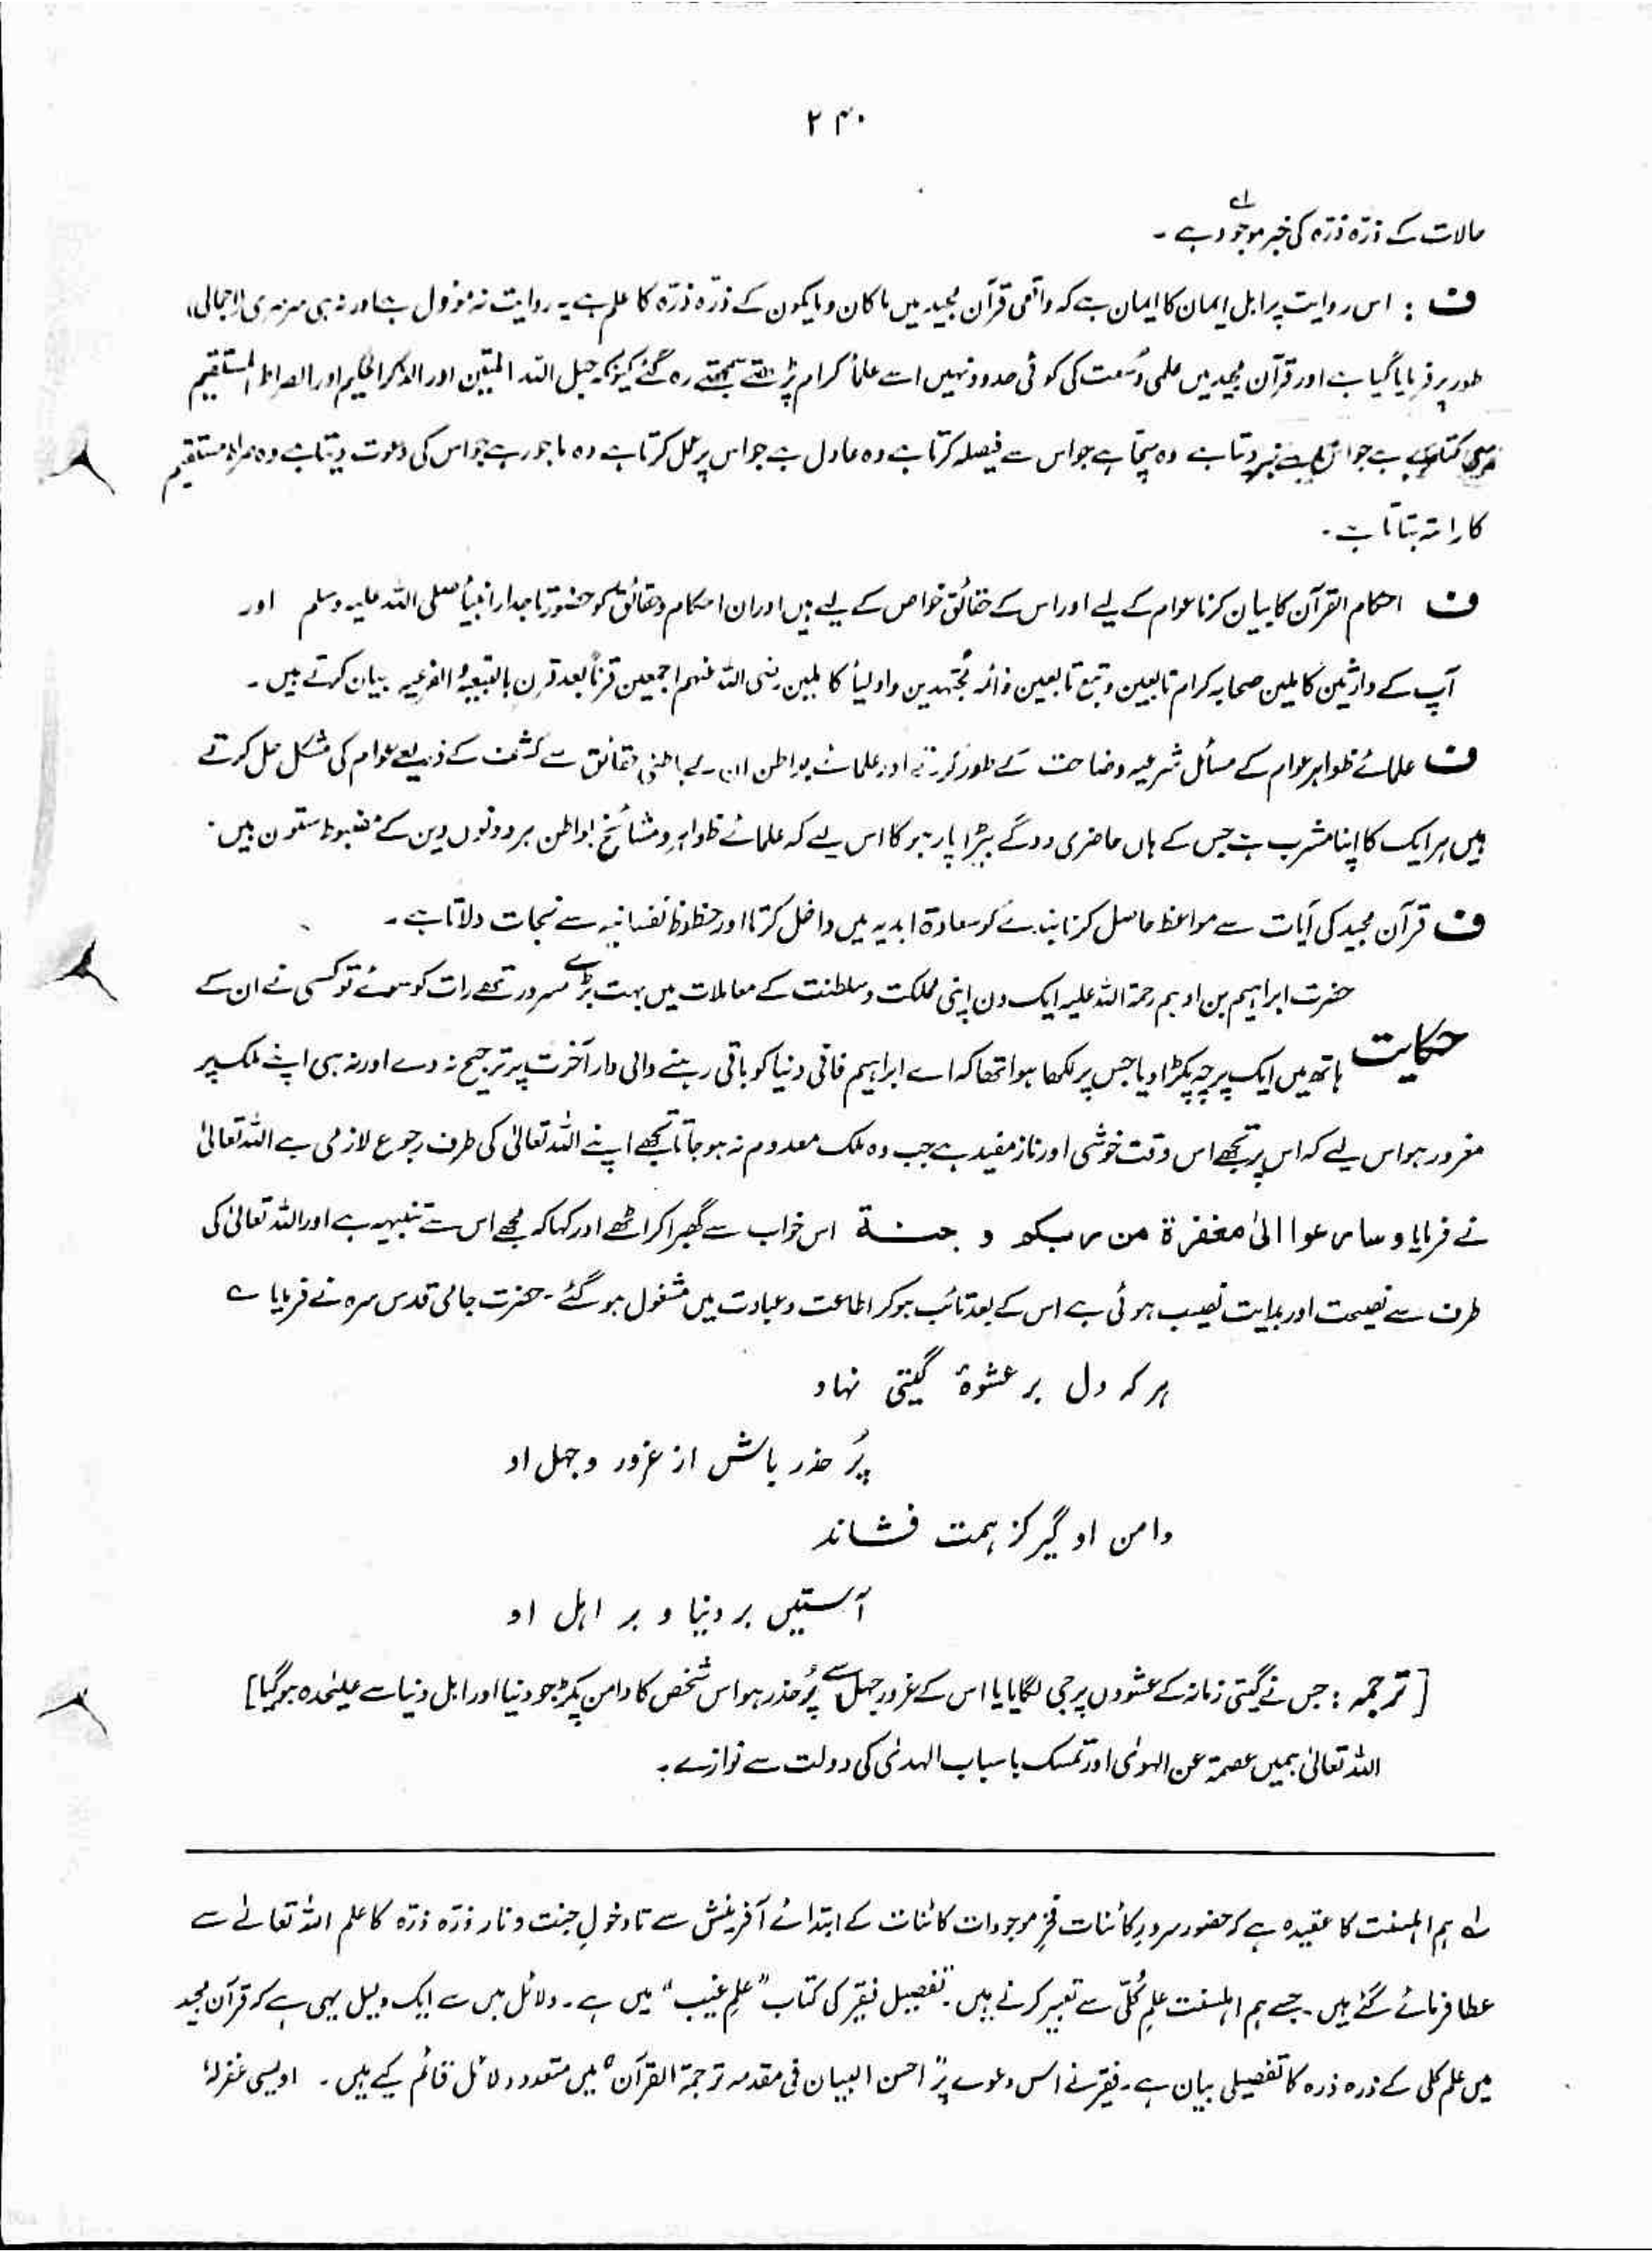 ۲۴۰
حالات کے ذرّہ ذرّہ کی خبر موجود ہے ۔ لہ
ف : اس روایت پر اہل ایمان کا ایمان ہے کہ واقعی قرآن مجید میں ما کان و ما یکون کے ذرّہ ذرّہ کا علم ہے یہ روایت نہ مؤول ہے اور نہ ہی سرسری (اجمالی)
طور پر فرمایا گیا ہے اور قرآن مجید میں علمی وسعت کی کوئی حدود نہیں اسے علماً کرام پڑھتے سمجھتے رہ گئے کیونکہ حبل اللہ المتین اور الذکر الحکیم اور الصراط المستقیم
یہی کتاب ہے جو اس سے خبر دیتا ہے وہ سچا ہے جو اس سے فیصلہ کرتا ہے وہ عادل ہے جو اس پر عمل کرتا ہے وہ ماجور ہے جو اس کی دعوت دیتا ہے وہ صراط مستقیم
کا راستہ بتاتا ہے ۔
ف احکام القرآن کا بیان کرنا عوام کے لیے اور اس کے حقائق خواص کے لیے ہیں اور ان احکام و حقائق کو حضور تاجدار انبیأ صلی اللہ علیہ وسلم اور
آپ کے وارثین کاملین صحابہ کرام تابعین و تبع تابعین و ائمہ مجتہدین و اولیأ کاملین رضی اللہ عنہم اجمعین قرناً بعد قرن بالتبعیۃ الفرعیہ بیان کرتے ہیں ۔
ف علمائے ظواہر عوام کے مسائل شرعیہ وضاحت کے طور کرتے اور علمائے بواطن ان کے باطنی حقائق سے کشف کے ذریعے عوام کی مشکل حل کرتے
ہیں ہر ایک کا اپنا مشرب ہے جس کے ہاں حاضری دو گے بیڑا پار ہوگا اس لیے کہ علمائے ظواہر و مشائخ بواطن ہر دونوں دین کے مضبوط ستون ہیں ۔
ف قرآن مجید کی آیات سے مواعظ حاصل کرنا بندے کو سعادۃ ابدیہ میں داخل کرتا اور حظوظ نفسانیہ سے نجات دلاتا ہے ۔
حضرت ابراہیم بن ادہم رحمۃ اللہ علیہ ایک دن اپنی مملکت و سلطنت کے معاملات میں بہت بڑے مسرور تھے رات کو سوئے تو کسی نے ان کے
حکایت ہاتھ میں ایک پرچہ پکڑا دیا جس پر لکھا ہوا تھا کہ اے ابراہیم فانی دنیا کو باقی رہنے والی دار آخرت پر ترجیح نہ دے اور نہ ہی اپنے ملک پر
مغرور ہو اس لیے کہ اس پر تجھے اس وقت خوشی اور ناز مفید ہے جب وہ ملک معدوم نہ ہو جاتا تجھے اپنے اللہ تعالیٰ کی طرف رجوع لازمی ہے اللہ تعالیٰ
نے فرمایا و سارعوا الیٰ مغفرۃ من ربکم و جنۃ اس خواب سے گھبرا کر اٹھے اور کہا کہ مجھے اس سے تنبیہہ ہے اور اللہ تعالیٰ کی
طرف سے نصیحت اور ہدایت نصیب ہوئی ہے اس کے بعد تائب ہو کر اطاعت و عبادت میں مشغول ہو گئے ۔ حضرت جامی قدس سرہ نے فرمایا ے
ہر کہ دل بر عشوۂ گیتی نہاد
پُر حذر باش از غرور و جہل او
دامن او گیر کز ہمت فشاند
آستیں بر دنیا و بر اہل او
[ ترجمہ : جس نے گیتی زمانہ کے عشووں پر جی لگایا یا اس کے غرور جہل سے پُر حذر ہو اس شخص کا دامن پکڑ جو دنیا اور اہل دنیا سے علیٰحدہ ہو گیا ]
اللہ تعالیٰ ہمیں عصمۃ عن الہوٰی اور تمسک باسباب الہدٰی کی دولت سے نوازے ۔
لہ ہم اہلسنت کا عقیدہ ہے کہ حضور سرورِ کائنات فخرِ موجودات کائنات کے ابتدائے آفرینش سے تا دخولِ جنت و نار ذرّہ ذرّہ کا علم اللہ تعالےٰ سے
عطا فرمائے گئے ہیں ۔ جسے ہم اہلسنت علمِ کُلّی سے تعبیر کرتے ہیں ۔ تفصیل فقیر کی کتاب "علمِ غیب" میں ہے ۔ دلائل میں سے ایک دلیل یہی ہے کہ قرآن مجید
میں علم کلی کے ذرہ ذرہ کا تفصیلی بیان ہے ۔ فقیر نے اس دعوے پر "احسن البیان فی مقدمہ ترجمۃ القرآن" میں متعدد دلائل قائم کیے ہیں ۔ اویسی غفرلہٗ